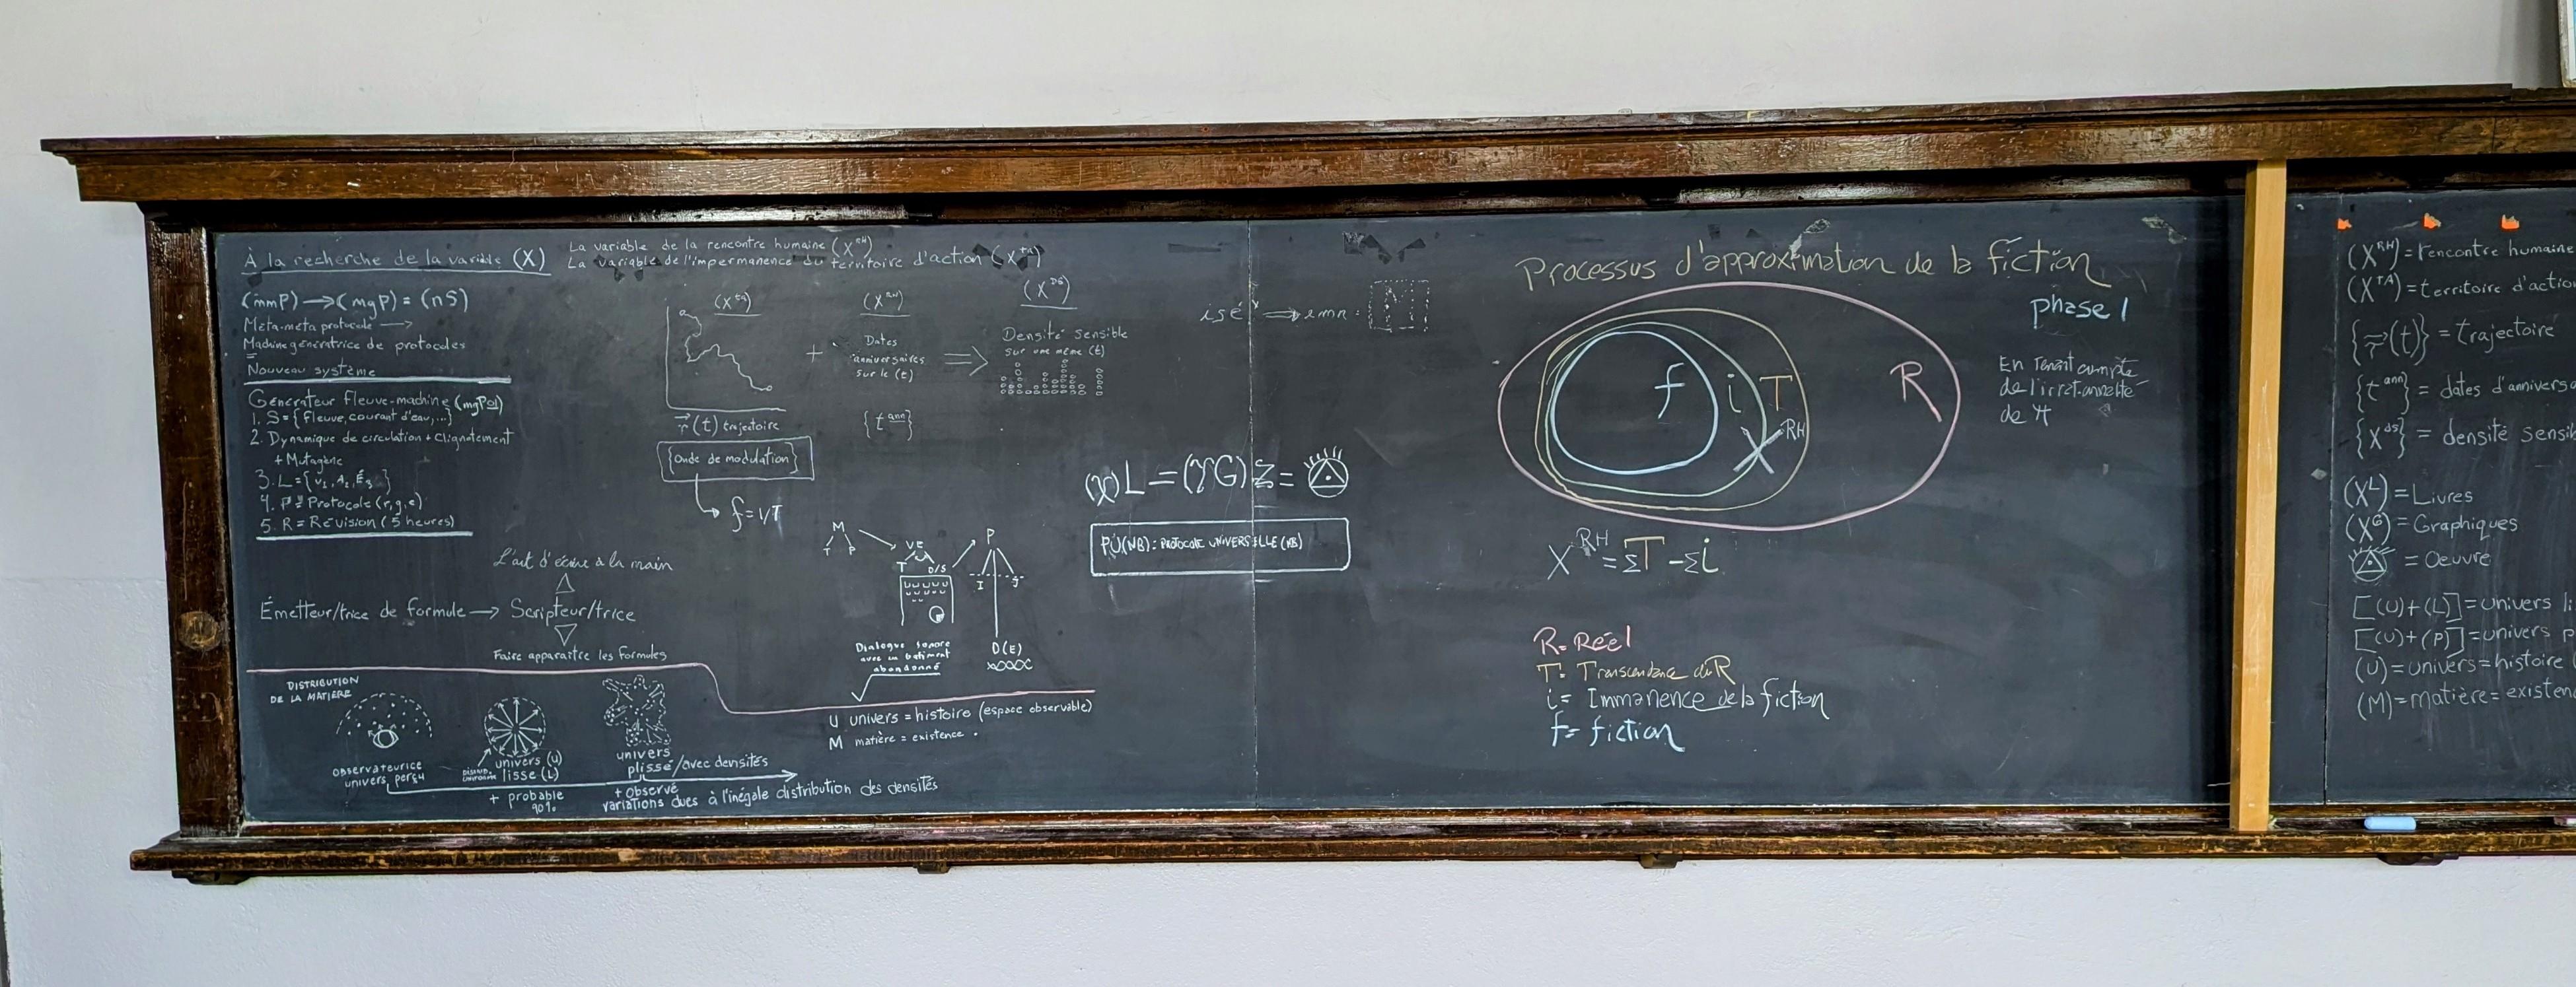 À la recherche de la variable (X)
La variable de la rencontre humaine (X^RH)
La variable de l'impermanence du territoire d'action (X^TA)
(mmP) → (mgP) = (nS)
Méta-meta protocole →
Machine génératrice de protocoles
=
Nouveau système
Générateur fleuve-machine (mgPol)
1. S = {fleuve, courant d'eau,...}
2. Dynamique de circulation + Clignotement
+ Mutagène
3. L = {
4. P = Protocole (r,g,e)
5. R = Révision (5 heures)
L'art d'écrire à la main
△
Émetteur/trice de formule → Scripteur/trice
▽
Faire apparaître les formules
(X^TA)
r(t) trajectoire
{Onde de modulation}
f = 1/T
+
(X^RH)
Dates
anniversaires
sur le (t)
{t^ann}
⇒
(X^DS)
Densité sensible
sur une même (t)
M
T P
VE
T D/S
P
I J
D(E)
Dialogue sonore
avec un bâtiment
abandonné
DISTRIBUTION
DE LA MATIÈRE
observateurice
univers perçu
univers (U)
lisse (L)
+ probable
90%
univers
plissé/avec densités
+ observé
variations dues à l'inégale distribution des densités
U univers = histoire (espace observable)
M matière = existence
isé ⇒ imn =
PU(NB): PROTOCOLE UNIVERSELLE (NB)
Processus d'approximation de la fiction
phase 1
f i T R
X^RH
En tenant compte
de l'irrationnalité
de
X^RH = ΣT - Σi
R = Réel
T = Transcendance du R
i = Immanence de la fiction
f = fiction
(X^RH) = rencontre humaine
(X^TA) = territoire d'action
{r(t)} = trajectoire
{t^ann} = dates d'anniversa
{X^ds} = densité sensib
(X^L) = Livres
(X^G) = Graphiques
= Oeuvre
[(U)+(L)] = univers li
[(U)+(P)] = univers p
(U) = univers = histoire (
(M) = matière = existenc